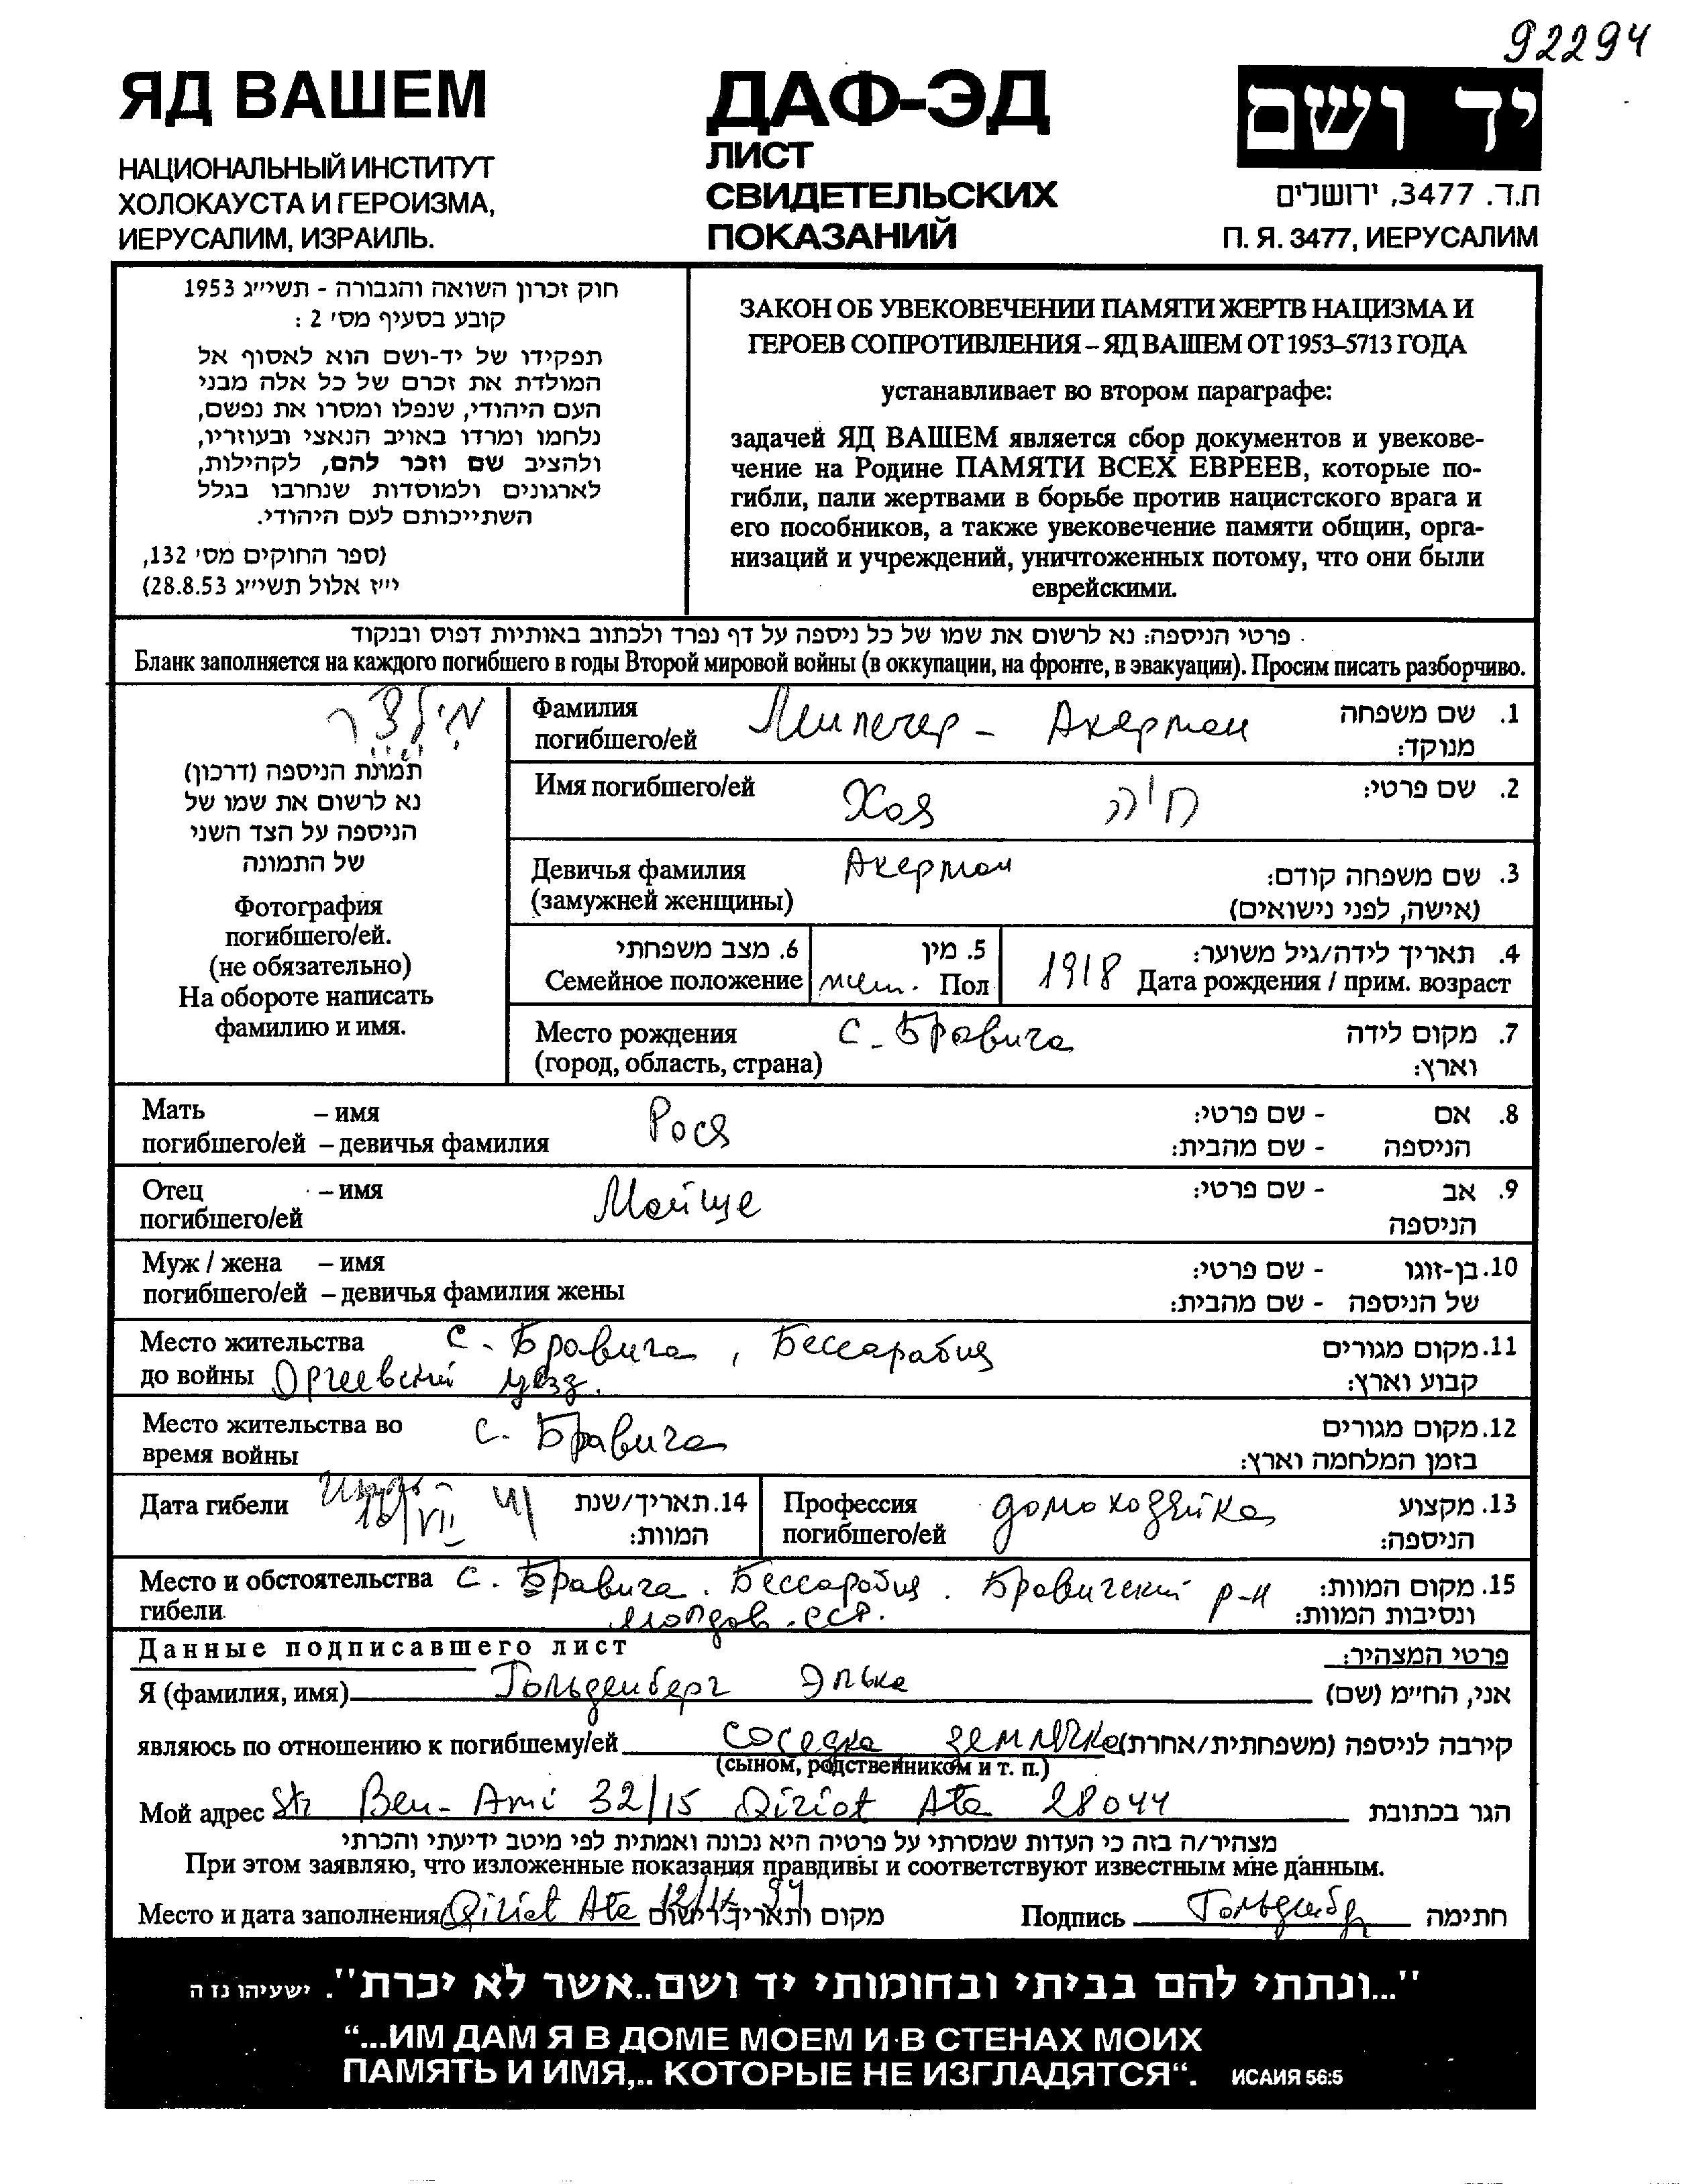 92294
ЯД ВАШЕМ
НАЦИОНАЛЬНЫЙ ИНСТИТУТ
ХОЛОКАУСТА И ГЕРОИЗМА,
ИЕРУСАЛИМ, ИЗРАИЛЬ.
ДАФ-ЭД
ЛИСТ
СВИДЕТЕЛЬСКИХ
ПОКАЗАНИЙ
יד ושם
ת.ד. 3477, ירושלים
П. Я. 3477, ИЕРУСАЛИМ
חוק זכרון השואה והגבורה - תשי״ג 1953
קובע בסעיף מס׳ 2 :
תפקידו של יד-ושם הוא לאסוף אל
המולדת את זכרם של כל אלה מבני
העם היהודי, שנפלו ומסרו את נפשם,
נלחמו ומרדו באויב הנאצי ובעוזריו,
ולהציב שם וזכר להם, לקהילות,
לארגונים ולמוסדות שנחרבו בגלל
השתייכותם לעם היהודי.
(ספר החוקים מס׳ 132,
י״ז אלול תשי״ג 28.8.53)
ЗАКОН ОБ УВЕКОВЕЧЕНИИ ПАМЯТИ ЖЕРТВ НАЦИЗМА И
ГЕРОЕВ СОПРОТИВЛЕНИЯ – ЯД ВАШЕМ ОТ 1953–5713 ГОДА
устанавливает во втором параграфе:
задачей ЯД ВАШЕМ является сбор документов и увекове-
чение на Родине ПАМЯТИ ВСЕХ ЕВРЕЕВ, которые по-
гибли, пали жертвами в борьбе против нацистского врага и
его пособников, а также увековечение памяти общин, орга-
низаций и учреждений, уничтоженных потому, что они были
еврейскими.
פרטי הניספה: נא לרשום את שמו של כל ניספה על דף נפרד ולכתוב באותיות דפוס ובנקוד
Бланк заполняется на каждого погибшего в годы Второй мировой войны (в оккупации, на фронте, в эвакуации). Просим писать разборчиво.
מילצר
תמונת הניספה (דרכון)
נא לרשום את שמו של
הניספה על הצד השני
של התמונה
Фотография
погибшего/ей.
(не обязательно)
На обороте написать
фамилию и имя.
Фамилия
погибшего/ей Милечер - Акерман
1. שם משפחה
מנוקד:
Имя погибшего/ей Хая חיה 2. שם פרטי:
Девичья фамилия Акерман 3. שם משפחה קודם:
(замужней женщины) (אישה, לפני נישואים)
6. מצב משפחתי 5. מין 4. תאריך לידה/גיל משוער:
Семейное положение жен. Пол 1918 Дата рождения / прим. возраст
Место рождения С. Бравича 7. מקום לידה
(город, область, страна) וארץ:
Мать – имя Рося 8. אם - שם פרטי:
погибшего/ей – девичья фамилия הניספה - שם מהבית:
Отец – имя Мойше 9. אב - שם פרטי:
погибшего/ей הניספה
Муж / жена – имя 10. בן-זוגו - שם פרטי:
погибшего/ей – девичья фамилия жены של הניספה - שם מהבית:
Место жительства С. Бравича, Бессарабия 11. מקום מגורים
до войны Оргеевский уезд. קבוע וארץ:
Место жительства во С. Бравича 12. מקום מגורים
время войны בזמן המלחמה וארץ:
Дата гибели 16/VII 41 14. תאריך/שנת
המוות:
Профессия домохозяйка 13. מקצוע
погибшего/ей הניספה:
Место и обстоятельства С. Бравича. Бессарабия. Бравичский р-н 15. מקום המוות:
гибели Молдов. ССР. ונסיבות המוות:
Данные подписавшего лист פרטי המצהיר:
Я (фамилия, имя) Гольденберг Элька אני, החי״מ (שם)
являюсь по отношению к погибшему/ей соседка землячка קירבה לניספה (משפחתית/אחרת)
(сыном, родственником и т. п.)
Мой адрес Str Ben-Ami 32/15 Qiriat Ata 28044 הגר בכתובת
מצהיר/ה בזה כי העדות שמסרתי על פרטיה היא נכונה ואמתית לפי מיטב ידיעתי והכרתי
При этом заявляю, что изложенные показания правдивы и соответствуют известным мне данным.
Место и дата заполнения Qiriat Ata מקום ותאריך רישום Подпись Гольденбр חתימה
"...ונתתי להם בביתי ובחומותי יד ושם..אשר לא יכרת". ישעיהו נז ה
“...ИМ ДАМ Я В ДОМЕ МОЕМ И В СТЕНАХ МОИХ
ПАМЯТЬ И ИМЯ,.. КОТОРЫЕ НЕ ИЗГЛАДЯТСЯ“. ИСАИЯ 56:5